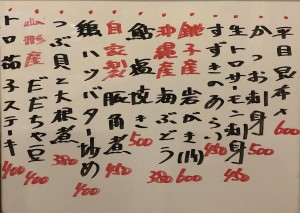 平目昆布〆 600
かつお刺身 500
生トロサーモン刺身 450
すずきのあらい 450
銚子産 岩がき(1ケ) 600
沖縄産 海ぶどう 380
鮎塩焼き 500
自家製 豚角煮 450
鶏ハツバター炒め 400
つぶ貝と大根煮 380
山形産 だだちゃ豆 400
トロ茄子ステーキ 400